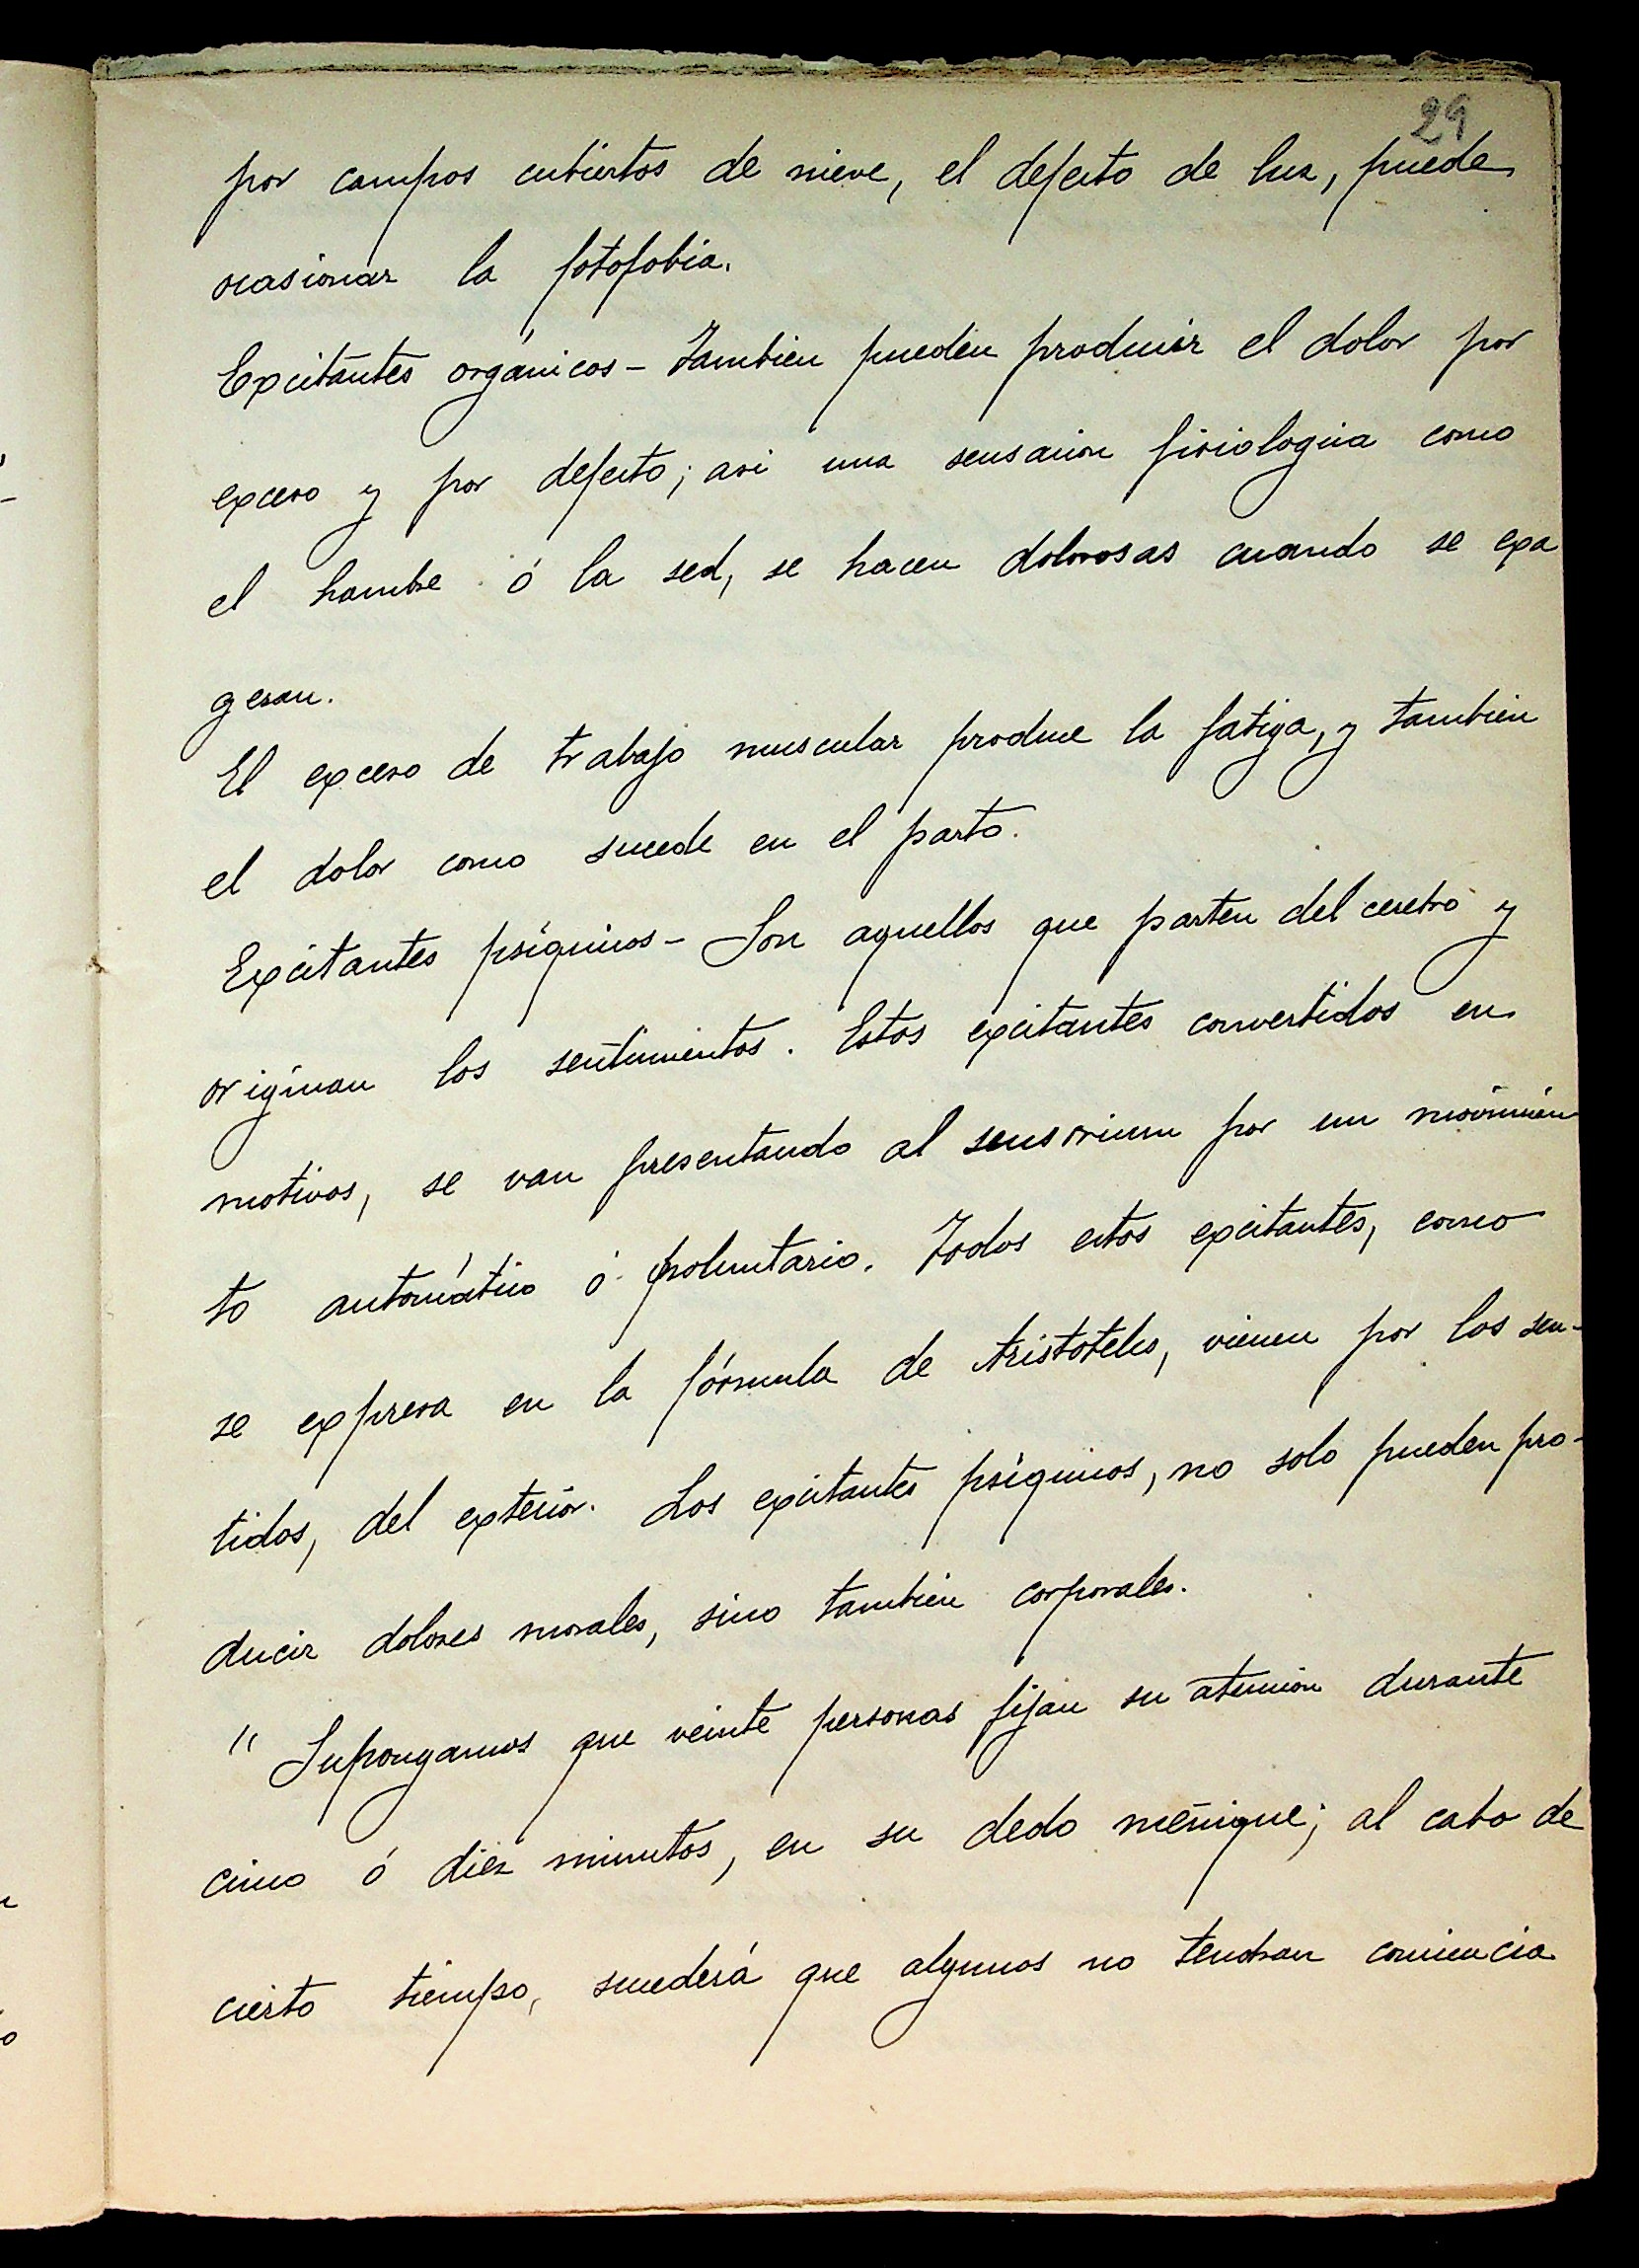 29
por campos cubiertos de nieve, el defecto de luz, puede
ocasionar la fotofobia.
Excitantes orgánicos - Tambien pueden producir el dolor por
exceso y por defecto; asi una sensacion fisiologica como
el hambre ó la sed, se hacen dolorosas cuando se exa
geran.
El exceso de trabajo muscular produce la fatiga, y tambien
el dolor como sucede en el parto.
Excitantes psíquicos - Son aquellos que parten del cerebro y
originan los sentimientos. Estos excitantes convertidos en
motivos, se van presentando al sensorium por un movimien
to automático ó voluntario. Todos estos excitantes, como
se expresa en la fórmula de Aristoteles, vienen por los sen-
tidos, del exterior. Los excitantes psíquicos, no solo pueden pro-
ducir dolores morales, sino tambien corporales.
" Supongamos que veinte personas fijan su atencion durante
cinco ó diez minutos, en su dedo meñique; al cabo de
cierto tiempo, sucederá que algunos no tendran conciencia